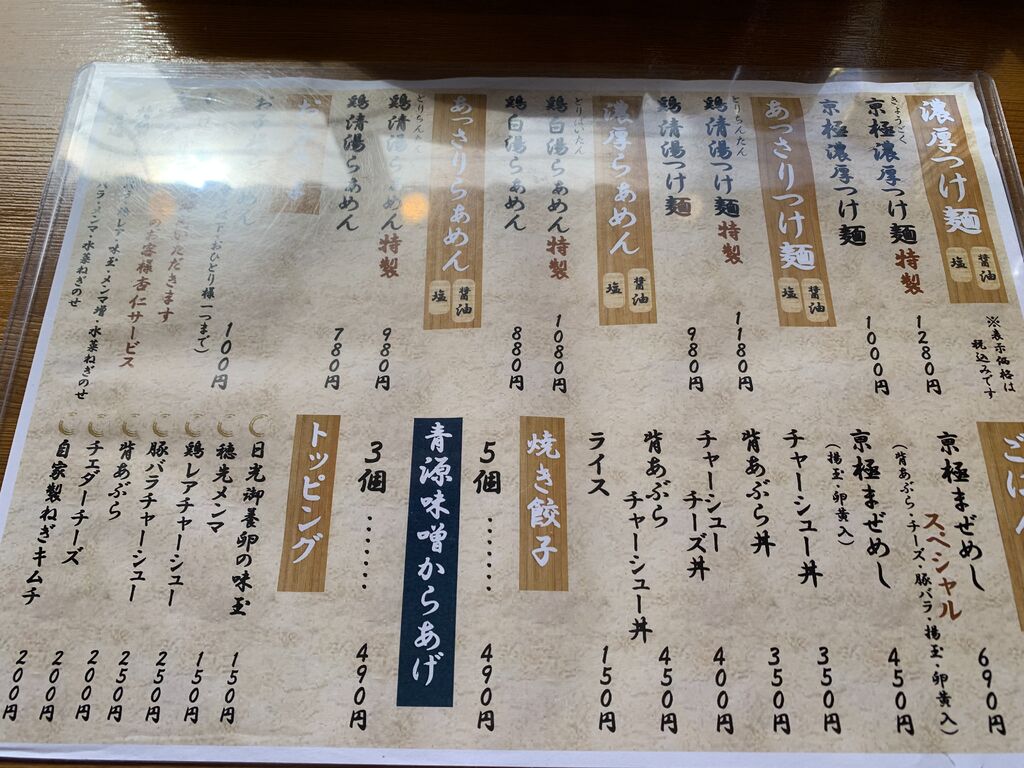 濃厚つけ麺
醤油
塩
※表示価格は
税込みです
きょうごく
京極濃厚つけ麺特製
1280円
京極濃厚つけ麺
1000円
あっさりつけ麺
醤油
塩
とりちんたん
鶏清湯つけ麺特製
1180円
鶏清湯つけ麺
980円
濃厚らぁめん
醤油
塩
とりぱいたん
鶏白湯らぁめん特製
1080円
鶏白湯らぁめん
880円
あっさりらぁめん
醤油
塩
とりちんたん
鶏清湯らぁめん特製
980円
鶏清湯らぁめん
780円
おひとり様一つまで)
100円
ただきます
お客様杏仁サービス
味玉・メンマ増・水菜ねぎのせ
バラ・メンマ・水菜ねぎのせ
ごはん
京極まぜめし
スペシャル
(背あぶら・チーズ・豚バラ・揚玉・卵黄入)
690円
京極まぜめし
(揚玉・卵黄入)
450円
チャーシュー丼
350円
背あぶら丼
350円
チャーシュー
チーズ丼
400円
背あぶら
チャーシュー丼
450円
ライス
150円
焼き餃子
5個・・・・・・・
490円
青源味噌からあげ
3個・・・・・・・
490円
トッピング
日光御養卵の味玉
150円
穂先メンマ
150円
鶏レアチャーシュー
250円
豚バラチャーシュー
250円
背あぶら
200円
チェダーチーズ
200円
自家製ねぎキムチ
200円